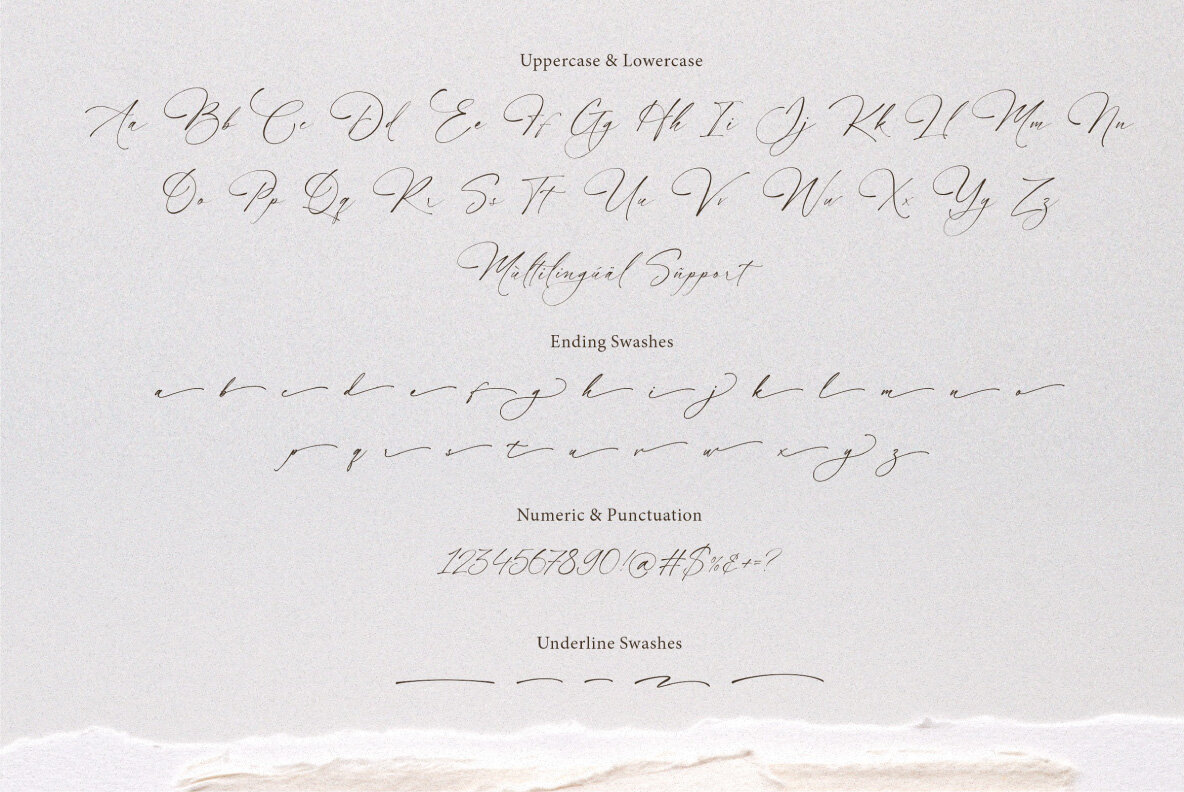 Uppercase & Lowercase
Aa Bb Cc Dd Ee Ff Gg Hh Ii Jj Kk Ll Mm Nn
Oo Pp Qq Rr Ss Tt Uu Vv Ww Xx Yy Zz
Múltilingúàl Süpport
Ending Swashes
a b c d e f g h i j k l m n o
p q r s t u v w x y z
Numeric & Punctuation
1234567890!@#$%&+=?
Underline Swashes